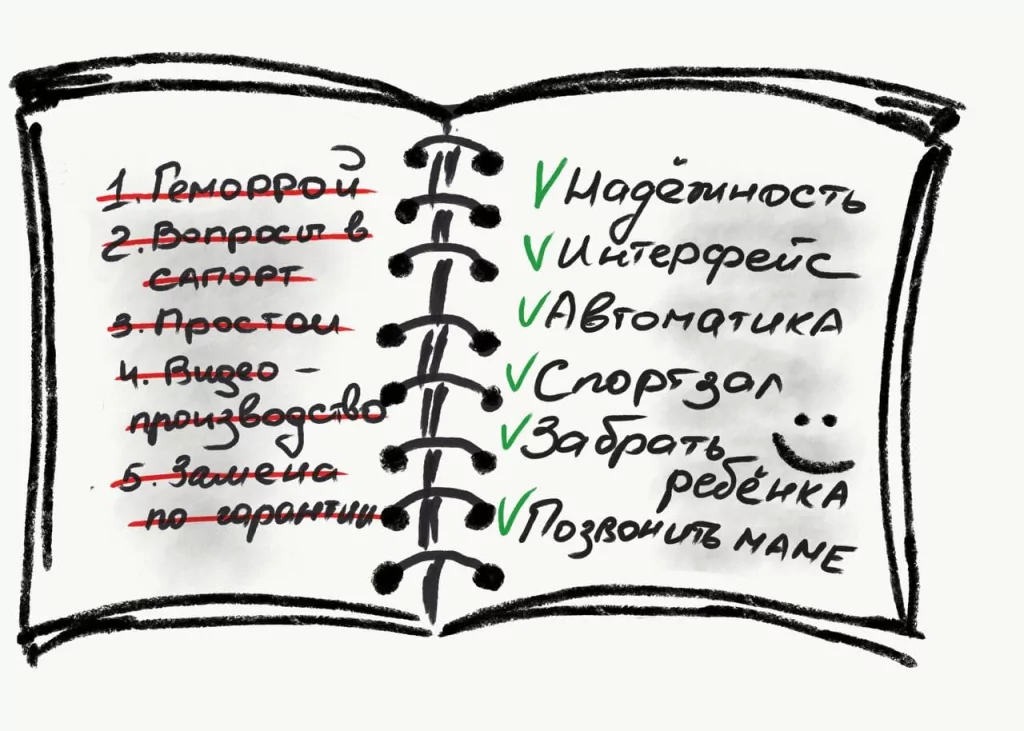 1. Геморрой
2. Вопросы в
сапорт
3. Простои
4. Видео -
производство
5. Замена
по гарантии
Надёжность
Интерфейс
Автоматика
Спортзал
Забрать
ребёнка
Позвонить маме